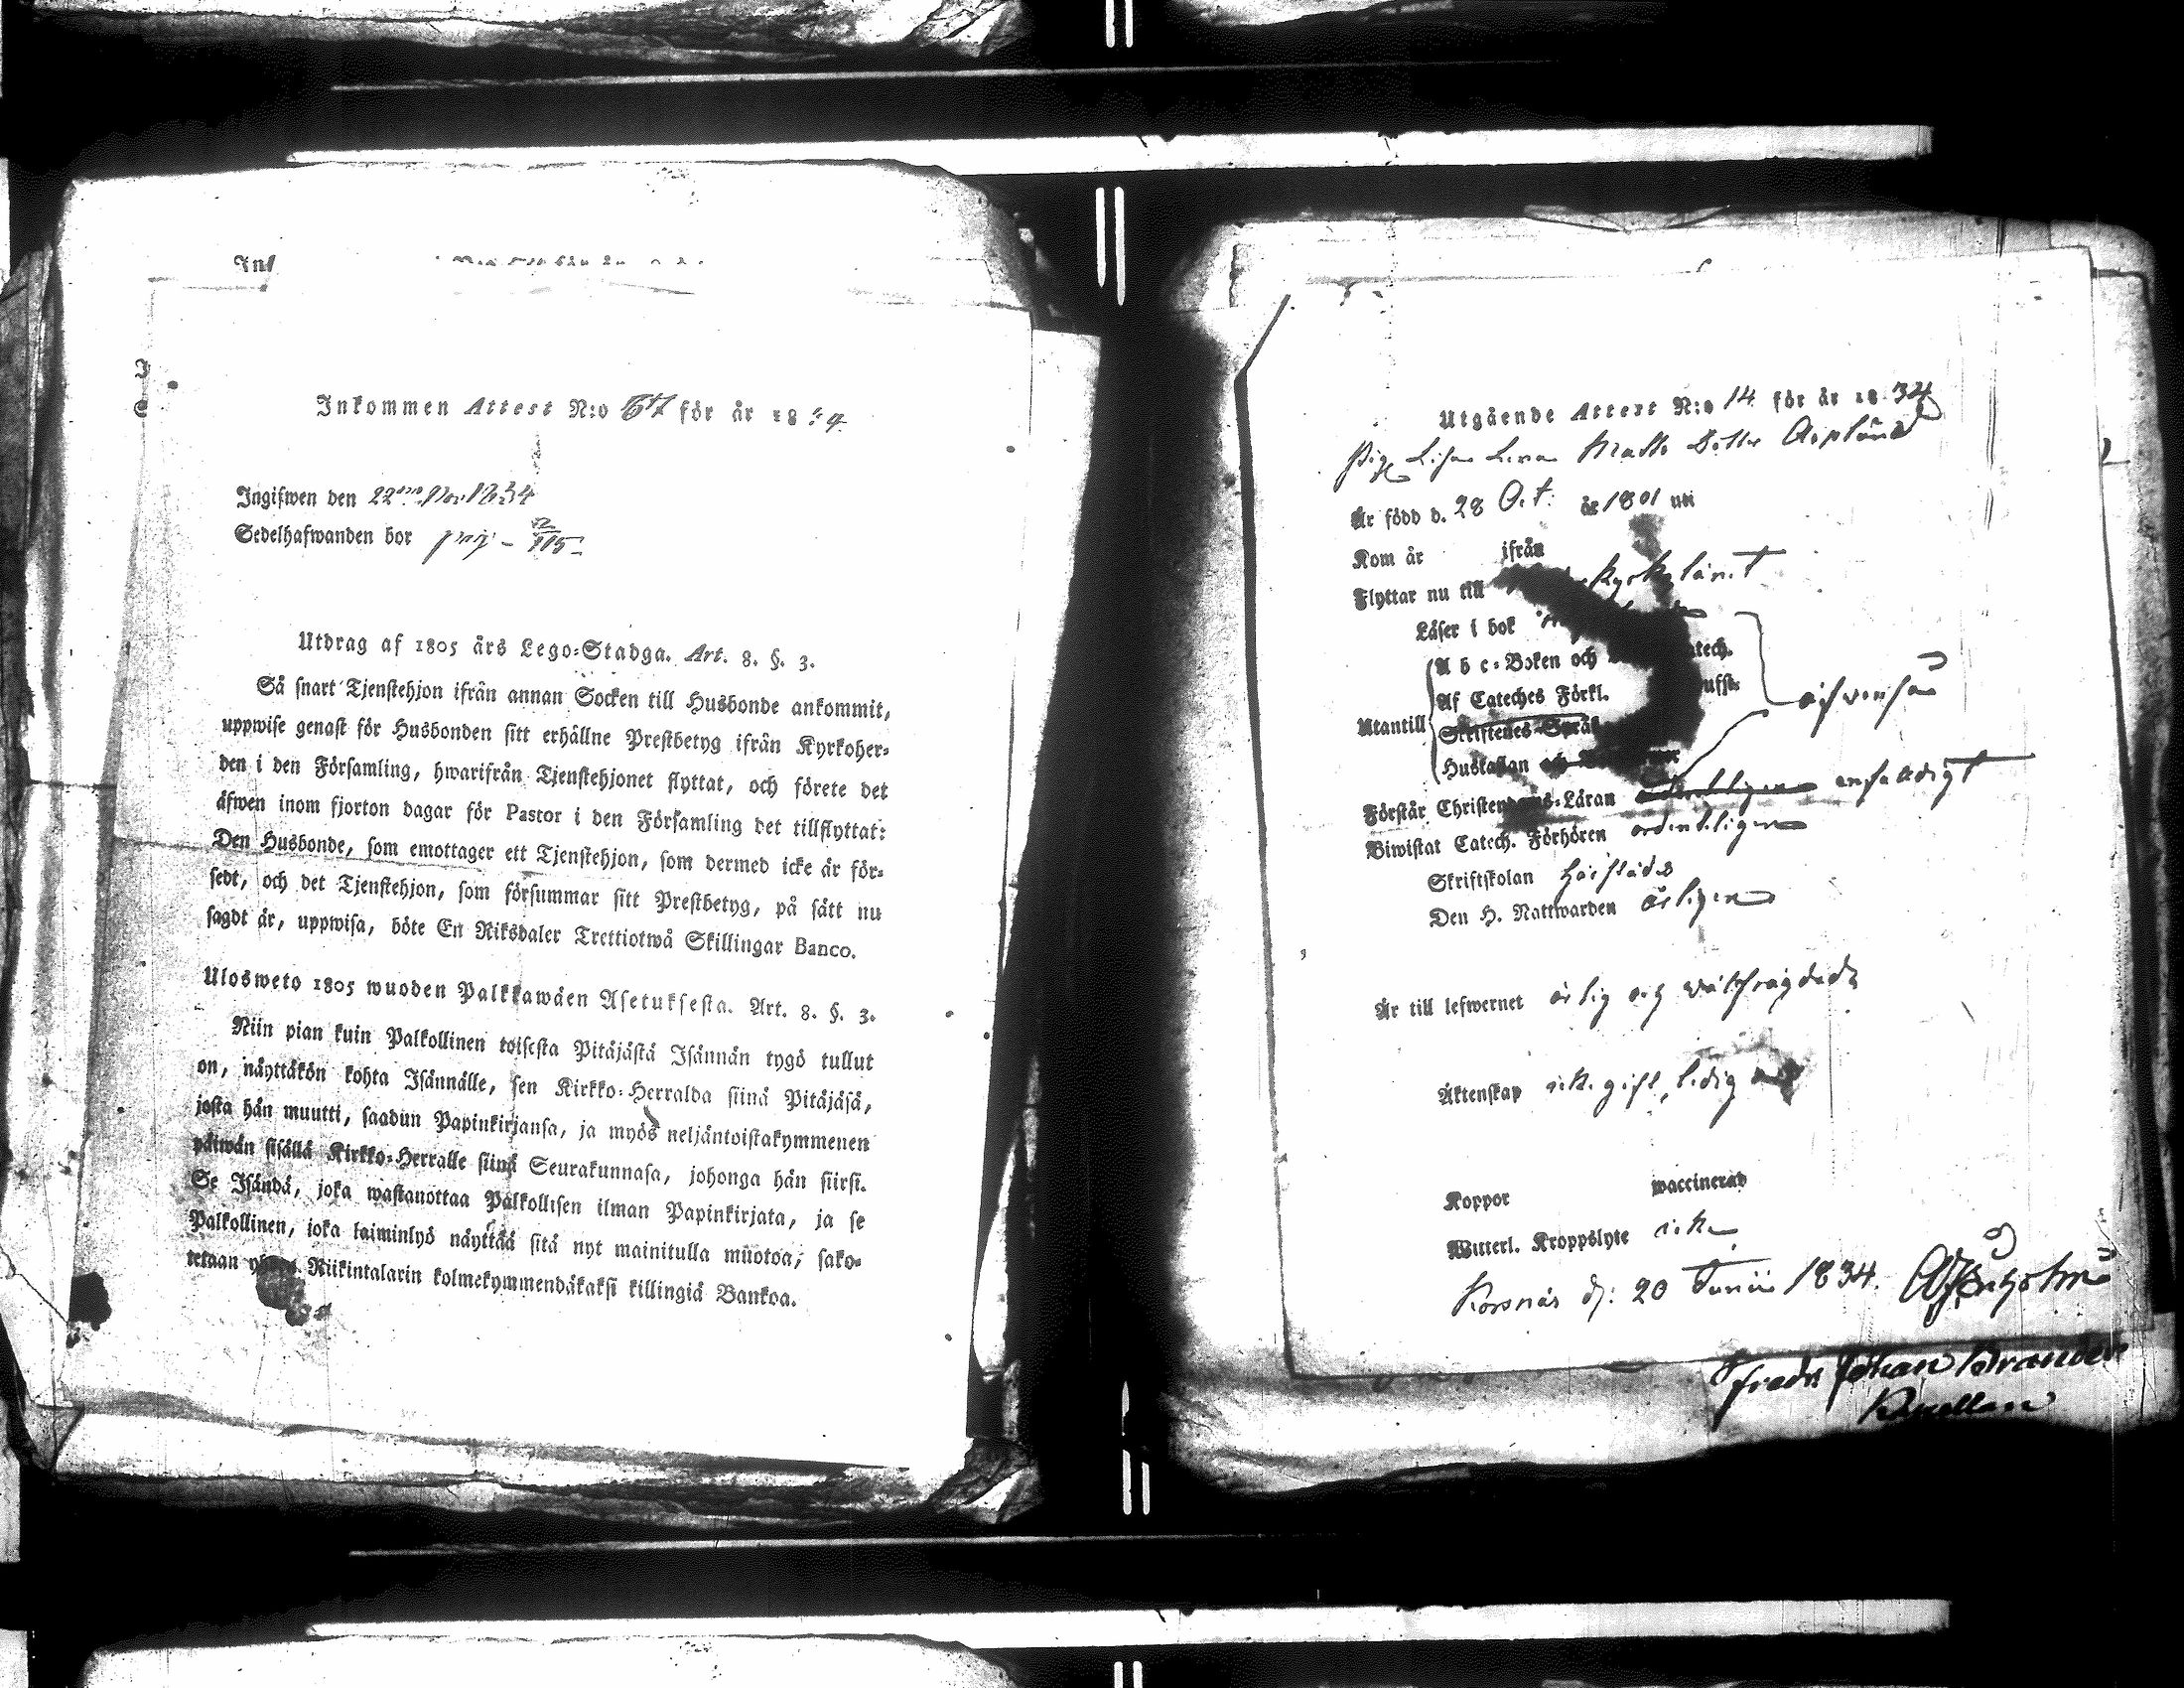 Inkommen Attest N:o 67 för år 1834
Ingifwen den 22 Nov 1834
Sedelhafwanden bor pag. 115
Utdrag af 1805 års Lego-Stadga. Art. 8. §. 3.
Så snart Tjenstehjon ifrån annan Socken till Husbonde ankommit,
uppwise genast för Husbonden sitt erhållne Prestbetyg ifrån Kyrkoher-
den i den Församling, hwarifrån Tjenstehjonet flyttat, och förete det
äfwen inom fjorton dagar för Pastor i den Församling det tillflyttat:
Den Husbonde, som emottager ett Tjenstehjon, som dermed icke är för-
sedt, och det Tjenstehjon, som försummar sitt Prestbetyg, på sätt nu
sagdt är, uppwisa, böte En Riksdaler Trettiotwå Skillingar Banco.
Ulosweto 1805 wuoden Palkkawäen Asetuksesta. Art. 8. §. 3.
Niin pian kuin Palkollinen toisesta Pitäjästä Isännän tygö tullut
on, näyttäkön kohta Isännälle, sen Kirkko-Herralda siinä Pitäjäsä,
josta hän muutti, saadun Papinkirjansa, ja myös neljäntoistakymmenen
päiwän sisällä Kirkko-Herralle siinä Seurakunnasa, johonga hän siirsi.
Se Isändä, joka wastanottaa Palkollisen ilman Papinkirjata, ja se
Palkollinen, joka laiminlyö näyttää sitä nyt mainitulla muotoa, sako-
tetaan Riikintalarin kolmekymmendäkaksi killingiä Bankoa.
Utgående Attest N:o 14 för år 1834
Pig. Lisa Lena Matts Dotter Asplund
Är född d. 28 Oct. år 1801 uti
Kom år ifrån
Flyttar nu till
Läser i bok
A b c-Boken och
Af Cateches Förkl.
Utantill
Skriftenes Språk
Hustaflan och
Förstår Christendoms-Läran enfaldigt
Biwistat Catech. Förhören ordentligen
Skriftskolan härstädes
Den H. Nattwarden årligen
Är till lefwernet ärlig och wälfrägdad
Äktenskap icke gift, ledig
Koppor waccinerad
Witterl. Kroppslyte icke
Korsnäs d. 20 Junii 1834.
Fredr Johan